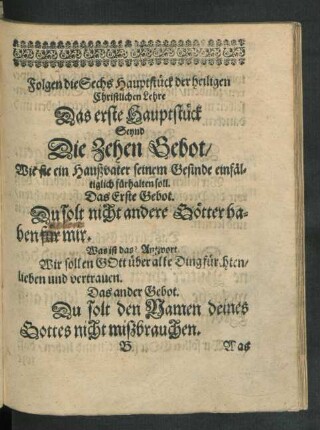 Folgen die Sechs Hauptstück der heiligen
Christlichen Lehre
Das erste Hauptstück
Seynd
Die Zehen Gebot/
Wie sie ein Haußvater seinem Gesinde einfäl-
tiglich fürhalten soll.
Das Erste Gebot.
Du solt nicht andere Götter ha-
ben für mir.
Was ist das? Antwort.
Wir sollen GOtt über alle Ding fürchten/
lieben und vertrauen.
Das ander Gebot.
Du solt den Namen deines
Gottes nicht mißbrauchen.
B. Was